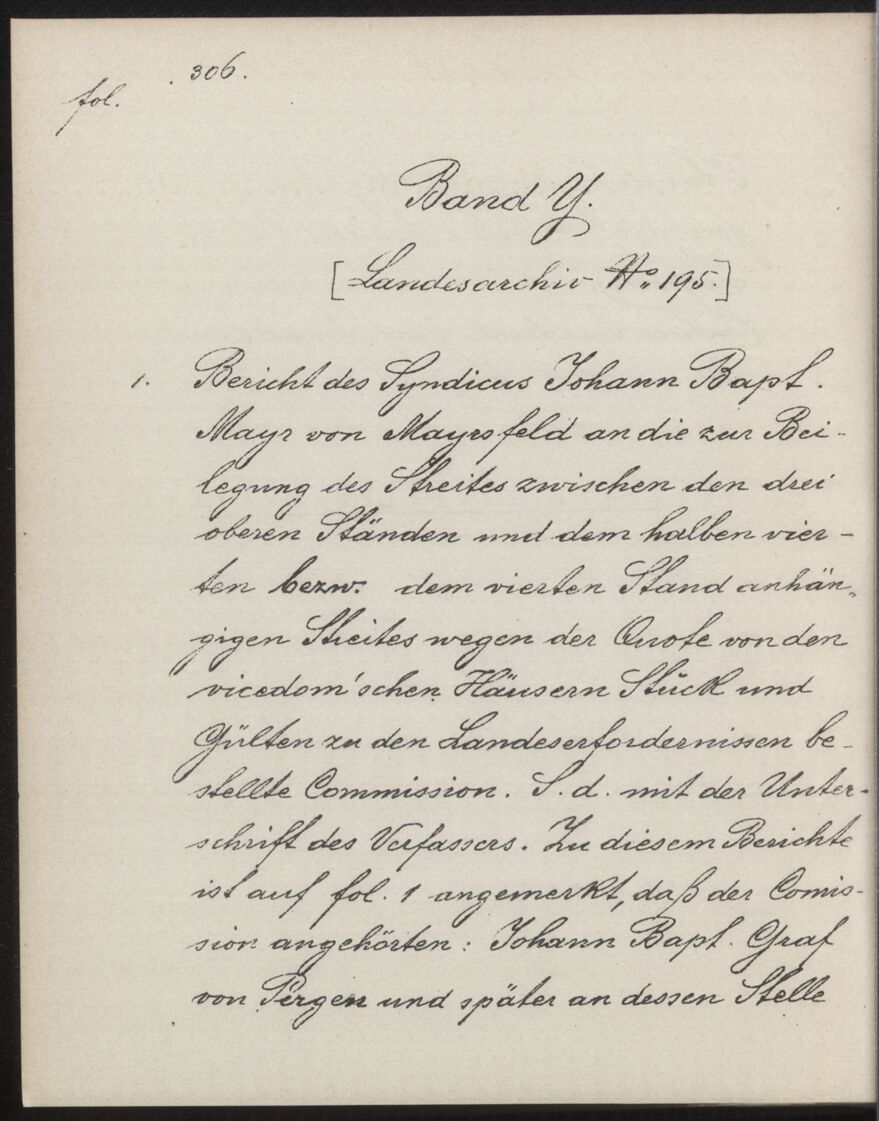 306.
fol.
Band Y.
[Landesarchiv No. 195.]
1. Bericht des Syndicus Johann Bapt.
Mayr von Mayrsfeld an die zur Bei-
legung des Streites zwischen den drei
oberen Ständen und dem halben vier-
ten bezw. dem vierten Stand anhän-
gigen Streites wegen der Quote von den
vicedom'schen Häusern Stück und
Gülten zu den Landeserfordernissen be-
stellte Commission. S. d. mit der Unter-
schrift des Verfassers. Zu diesem Berichte
ist auf fol. 1 angemerkt, daß der Comis-
sion angehörten: Johann Bapt. Graf
von Pergen und später an dessen Stelle